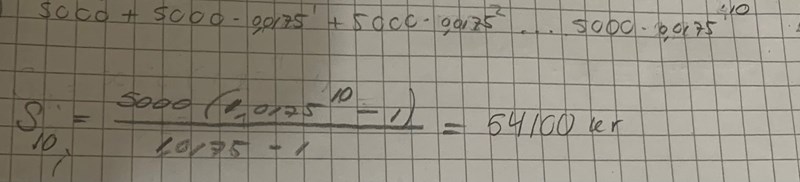 5000 + 5000 · 0,0175¹ + 5000 · 0,0175² ... 5000 · 0,0175¹⁰
S₁₀ = 5000 (1,0175¹⁰ - 1) / 1,0175 - 1 = 54100 kr